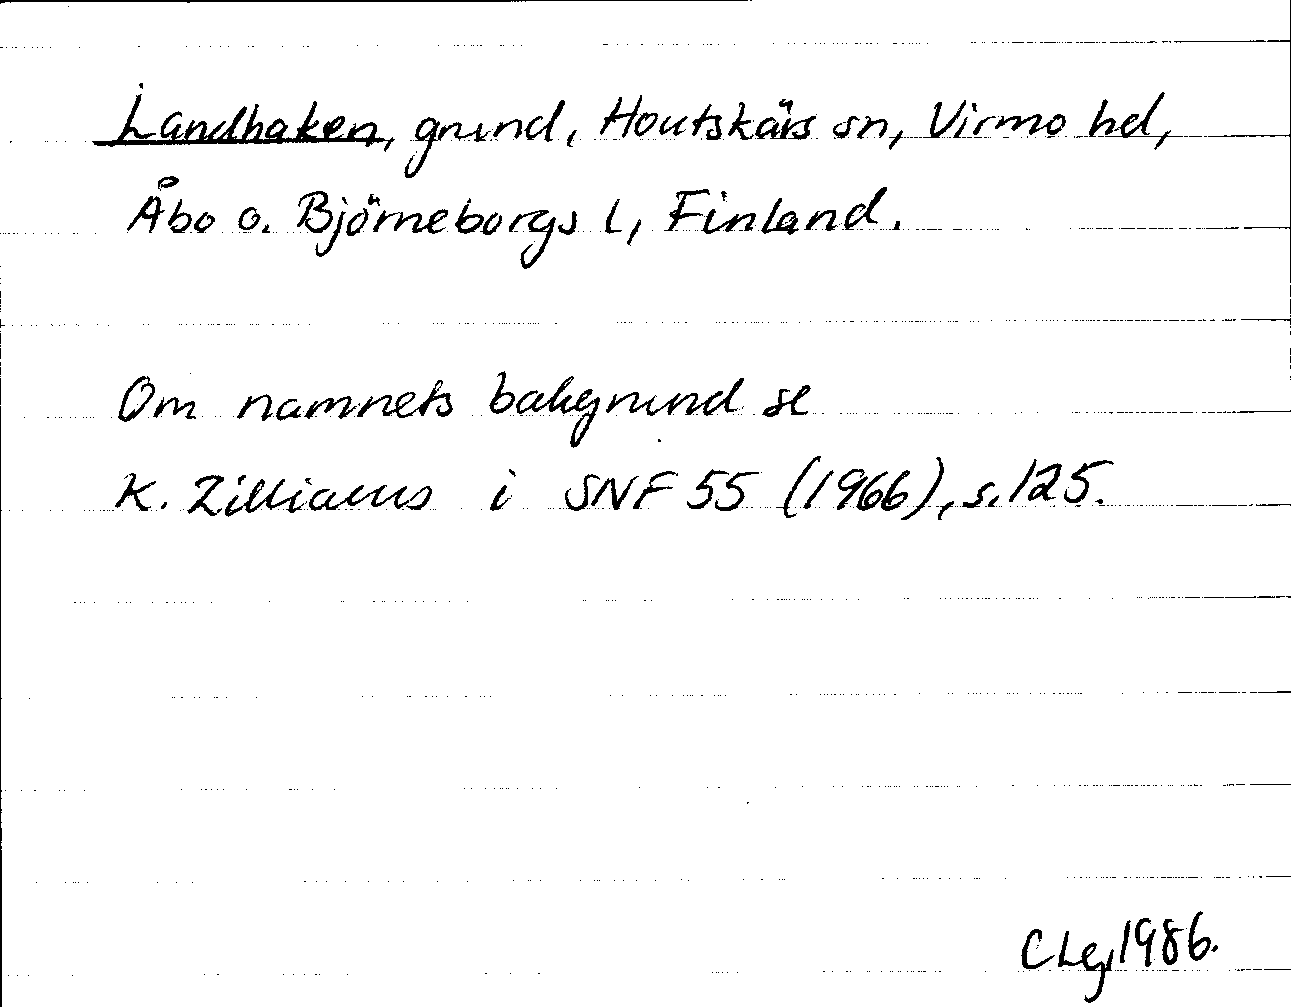 Landhaken, grund, Houtskärs sn, Virmo hd,
Åbo o. Björneborgs l, Finland.
Om namnets bakgrund se
K. Zilliacus i SNF 55 (1966), s. 125.
CLg, 1986.